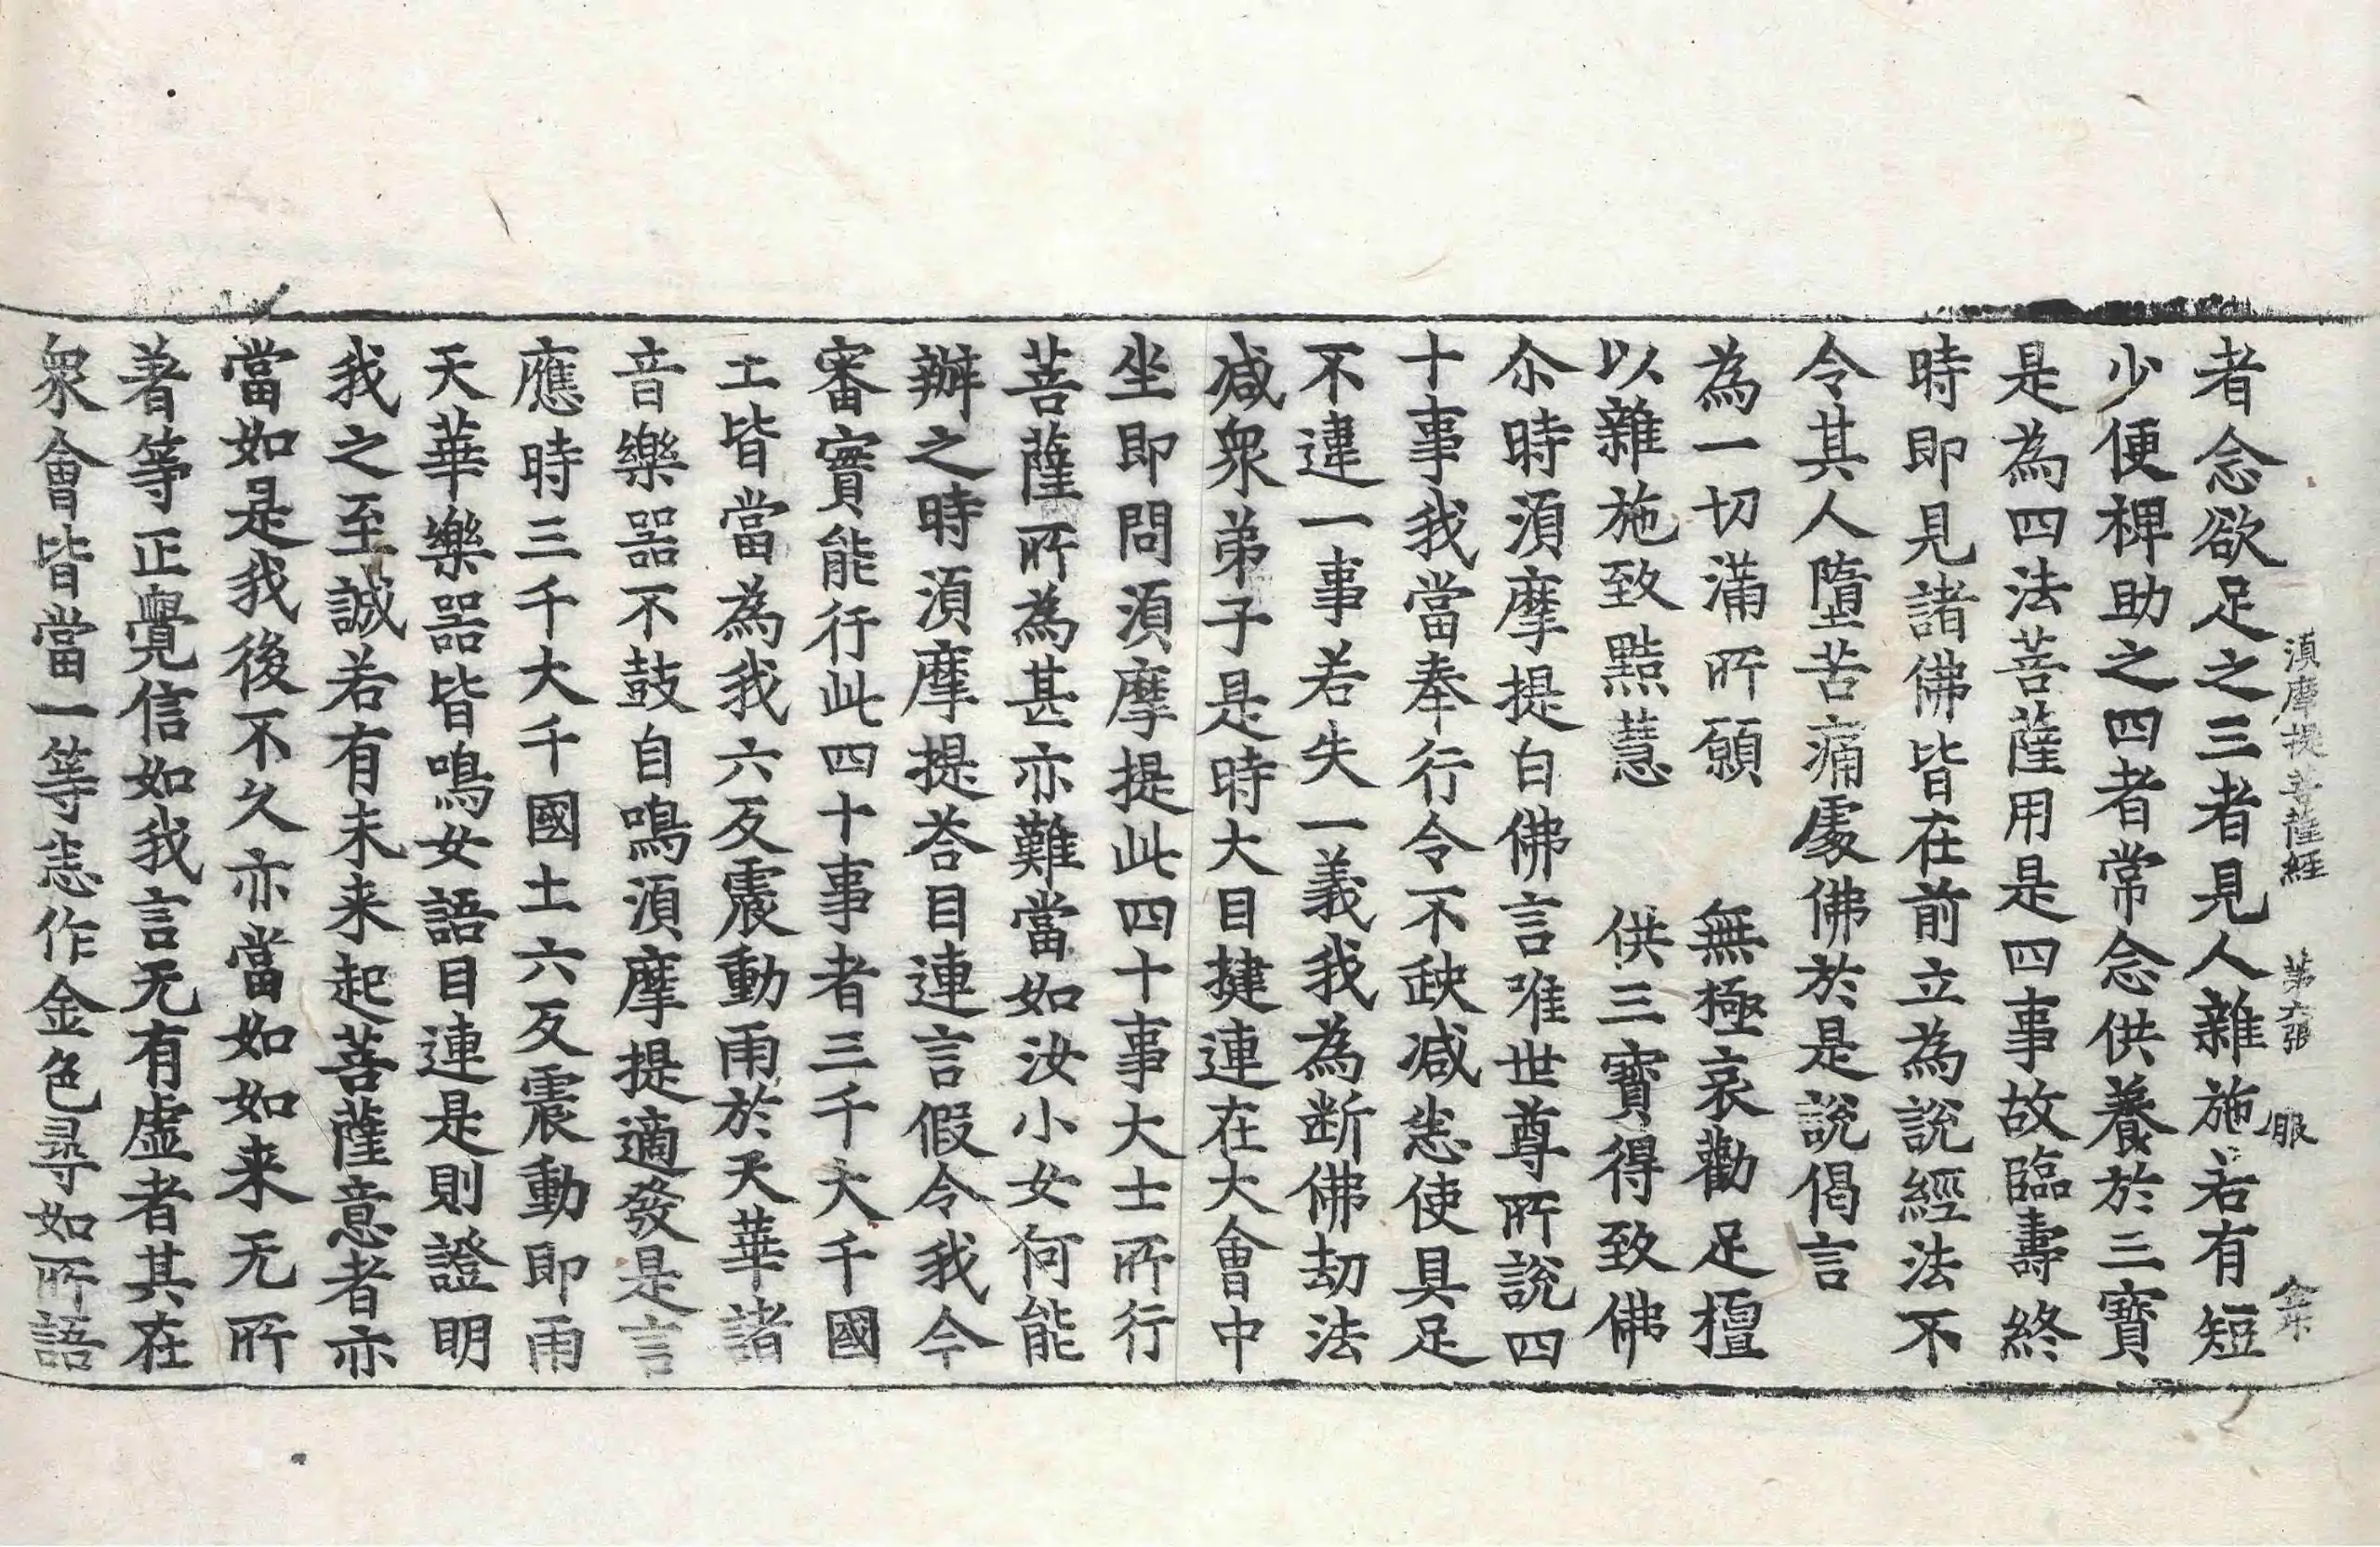 須摩提菩薩經 第六張 服
者念欲足之三者見人雜施若有短
少便稗助之四者常念供養於三寶
是為四法菩薩用是四事故臨壽終
時即見諸佛皆在前立為說經法不
令其人墮苦痛處佛於是說偈言
為一切滿所願 無極哀勸足檀
以雜施致黠慧 供三寶得致佛
尒時須摩提白佛言唯世尊所說四
十事我當奉行令不缺減悉使具足
不違一事若失一義我為断佛劫法
减衆弟子是時大目揵連在大會中
坐即問須摩提此四十事大士所行
菩薩所為甚亦難當如汝小女何能
辦之時須摩提荅目連言假令我今
審實能行此四十事者三千大千國
土皆當為我六反震動雨於天華諸
音樂器不鼓自鳴須摩提適發是言
應時三千大千國土六反震動即雨
天華樂器皆鳴女語目連是則證明
我之至誠若有未来起菩薩意者亦
當如是我後不久亦當如如来无所
著等正覺信如我言无有虛者其在
衆會皆當一等悉作金色尋如所語